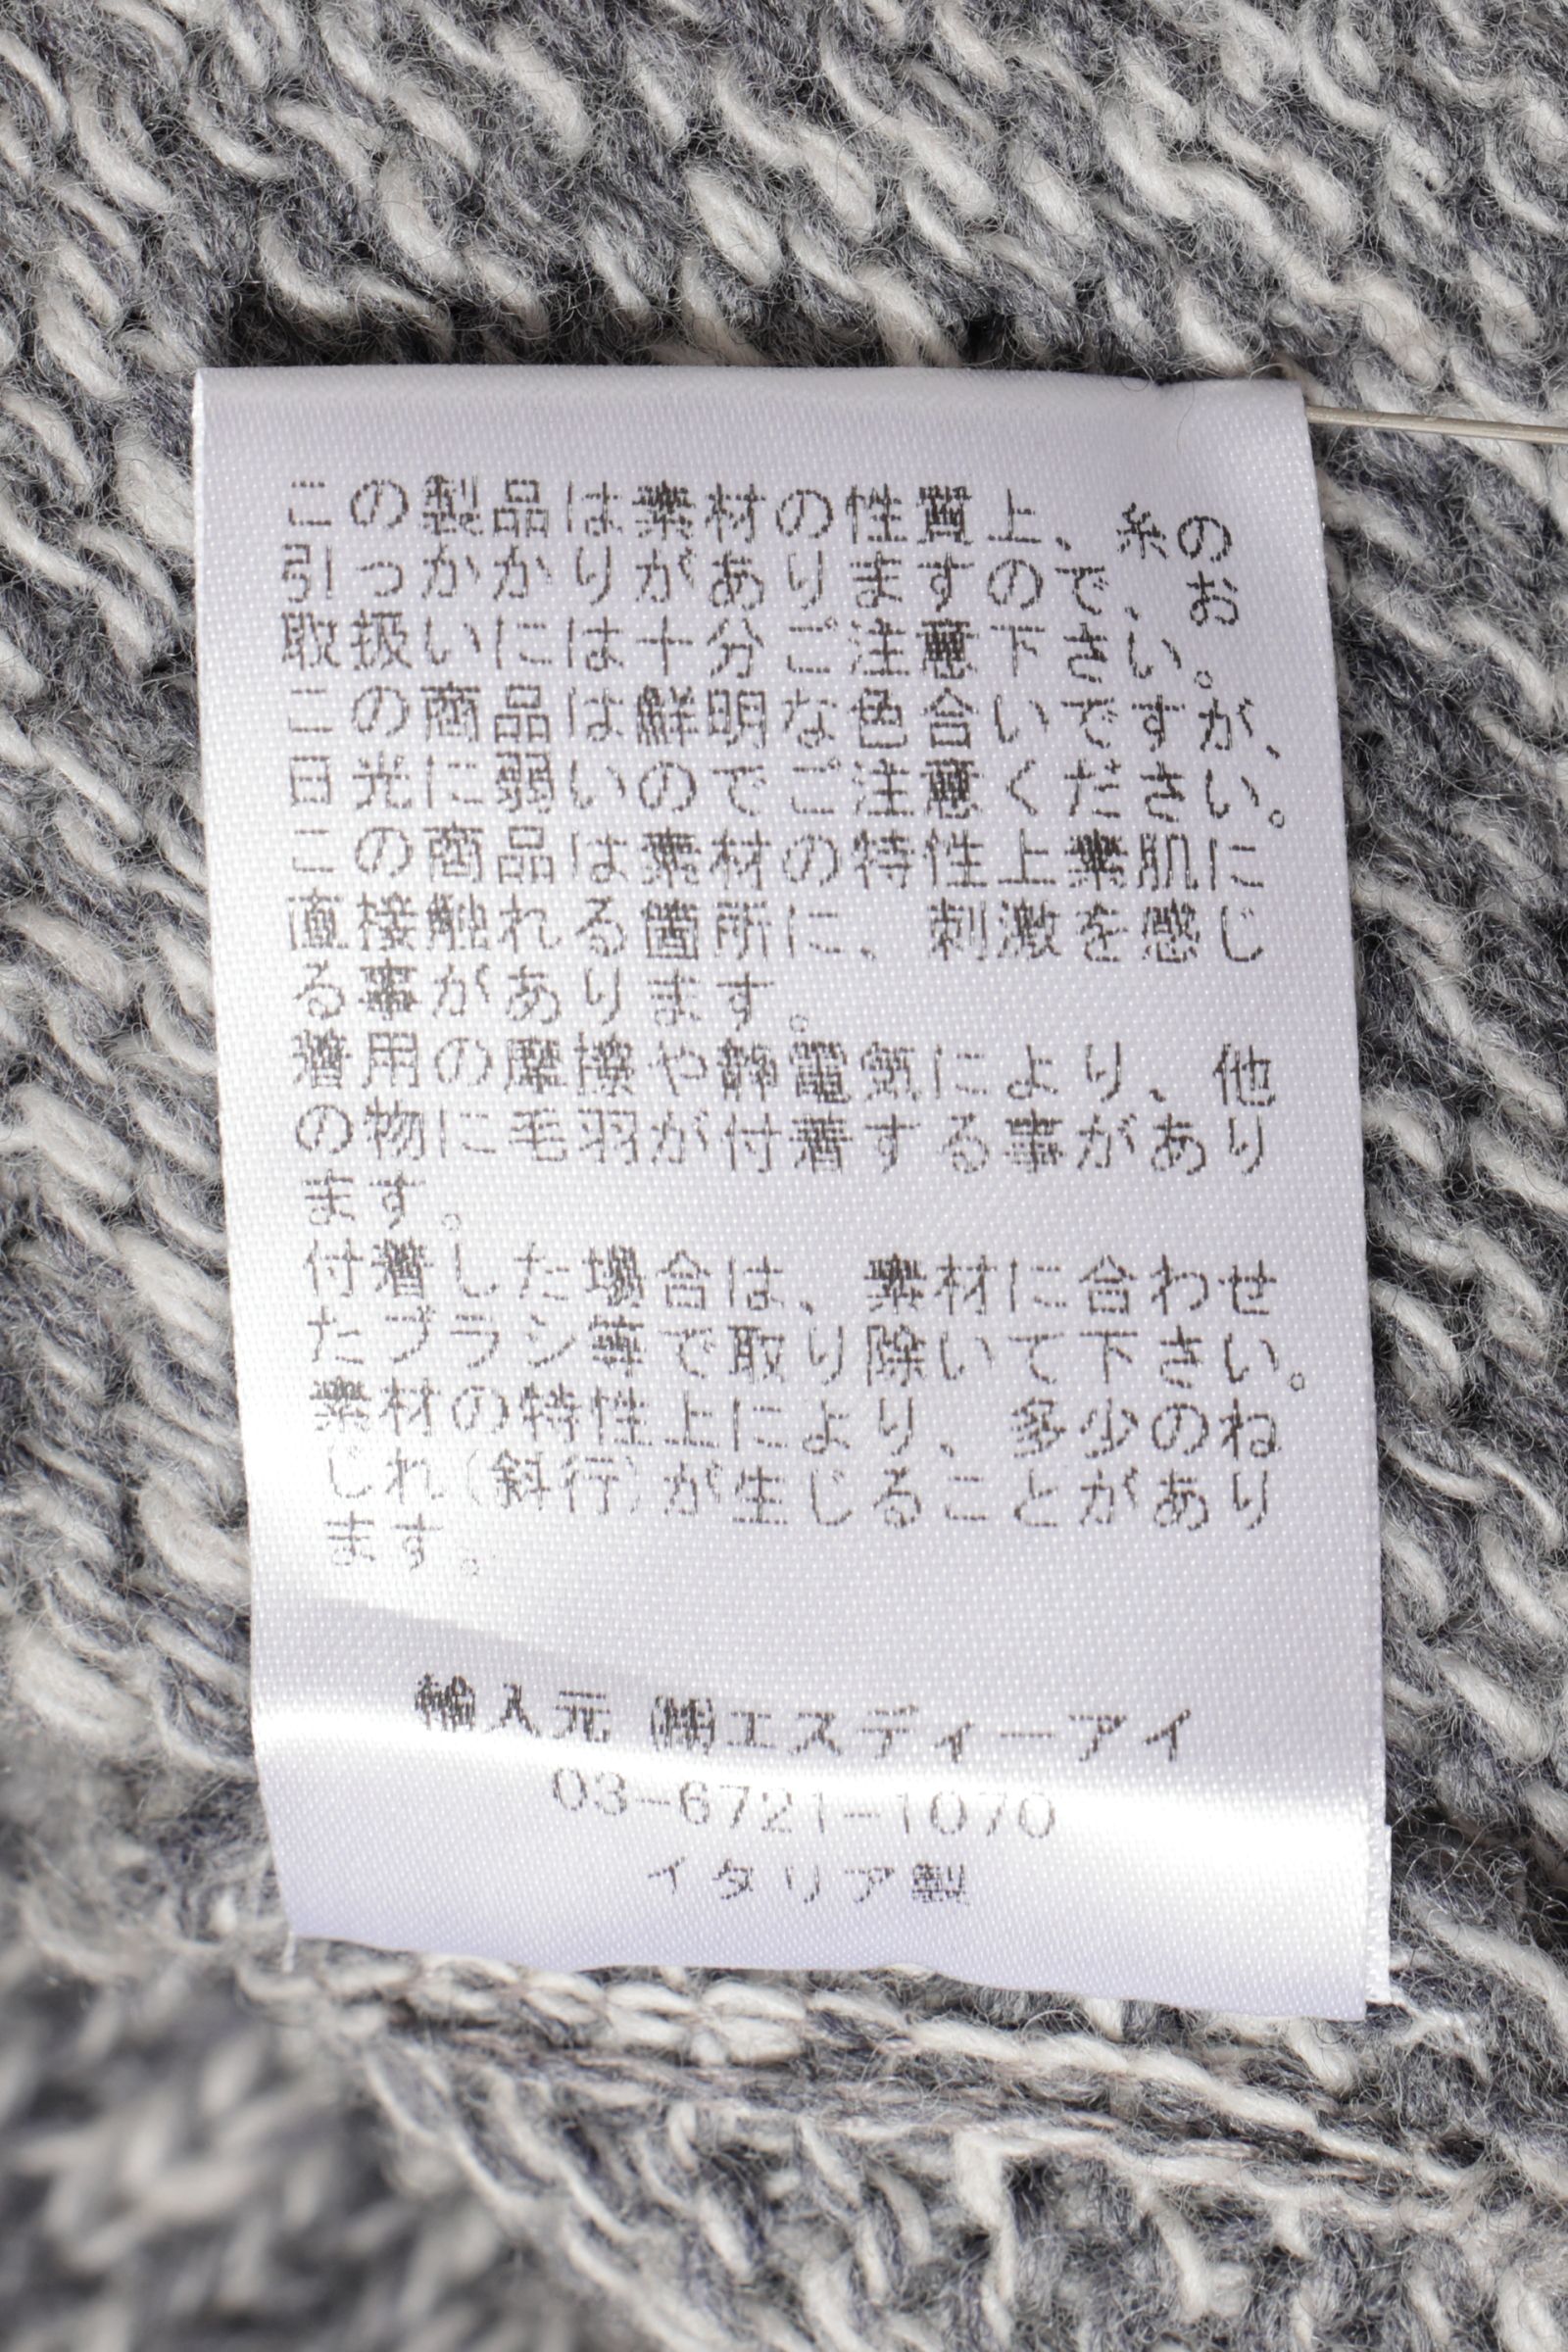 この製品は素材の性質上、糸の
引っかかりがありますので、お
取扱いには十分ご注意下さい。
この商品は鮮明な色合いですが、
日光に弱いのでご注意ください。
この商品は素材の特性上素肌に
直接触れる箇所に、刺激を感じ
る事があります。
着用の摩擦や静電気により、他
の物に毛羽が付着する事があり
ます。
付着した場合は、素材に合わせ
たブラシ等で取り除いて下さい。
素材の特性上により、多少のね
じれ(斜行)が生じることがあり
ます。
輸入元 ㈱エスディーアイ
03-6721-1070
イタリア製